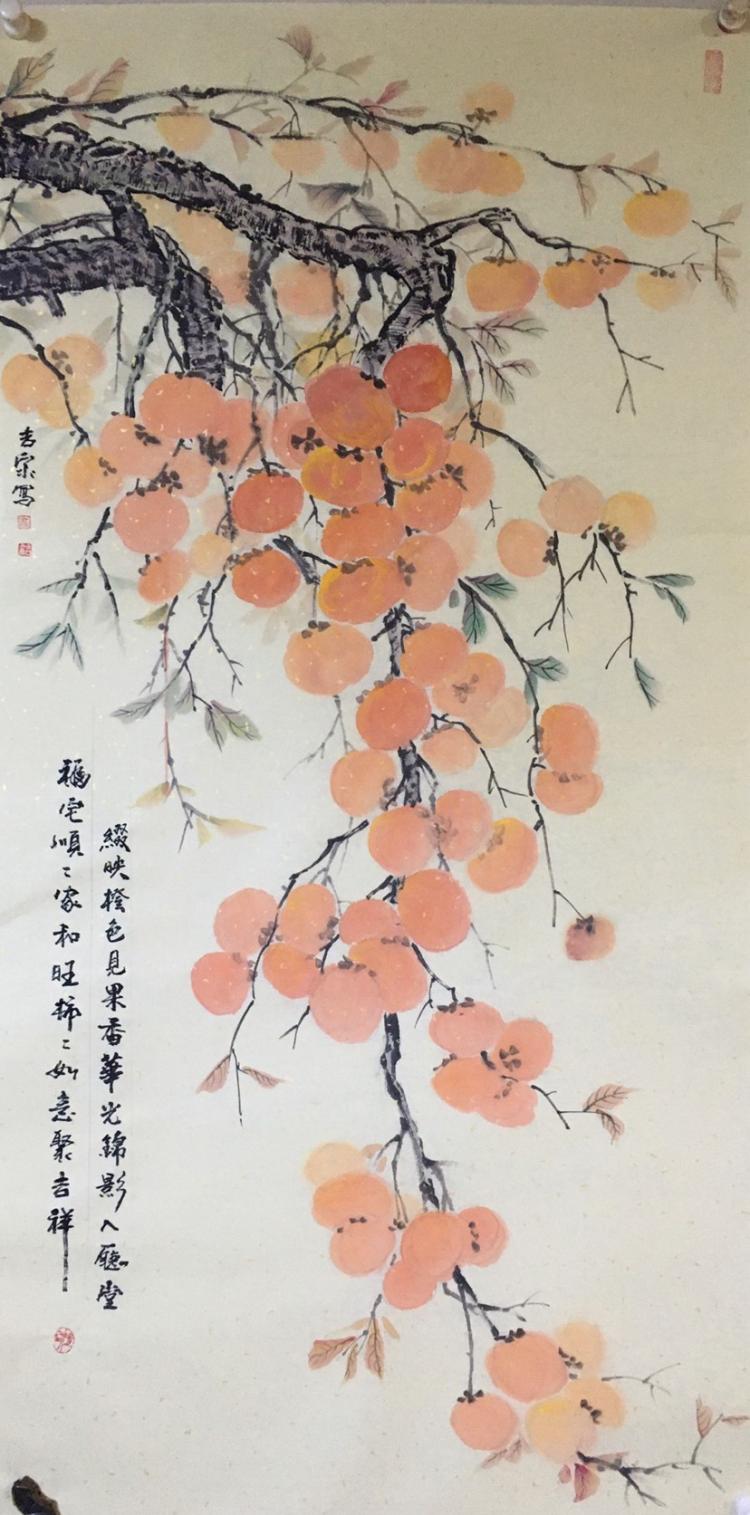 綴映橙色見果香華光錦影入廳堂
福宅順〻家和旺柿〻如意聚吉祥
吉宗寫